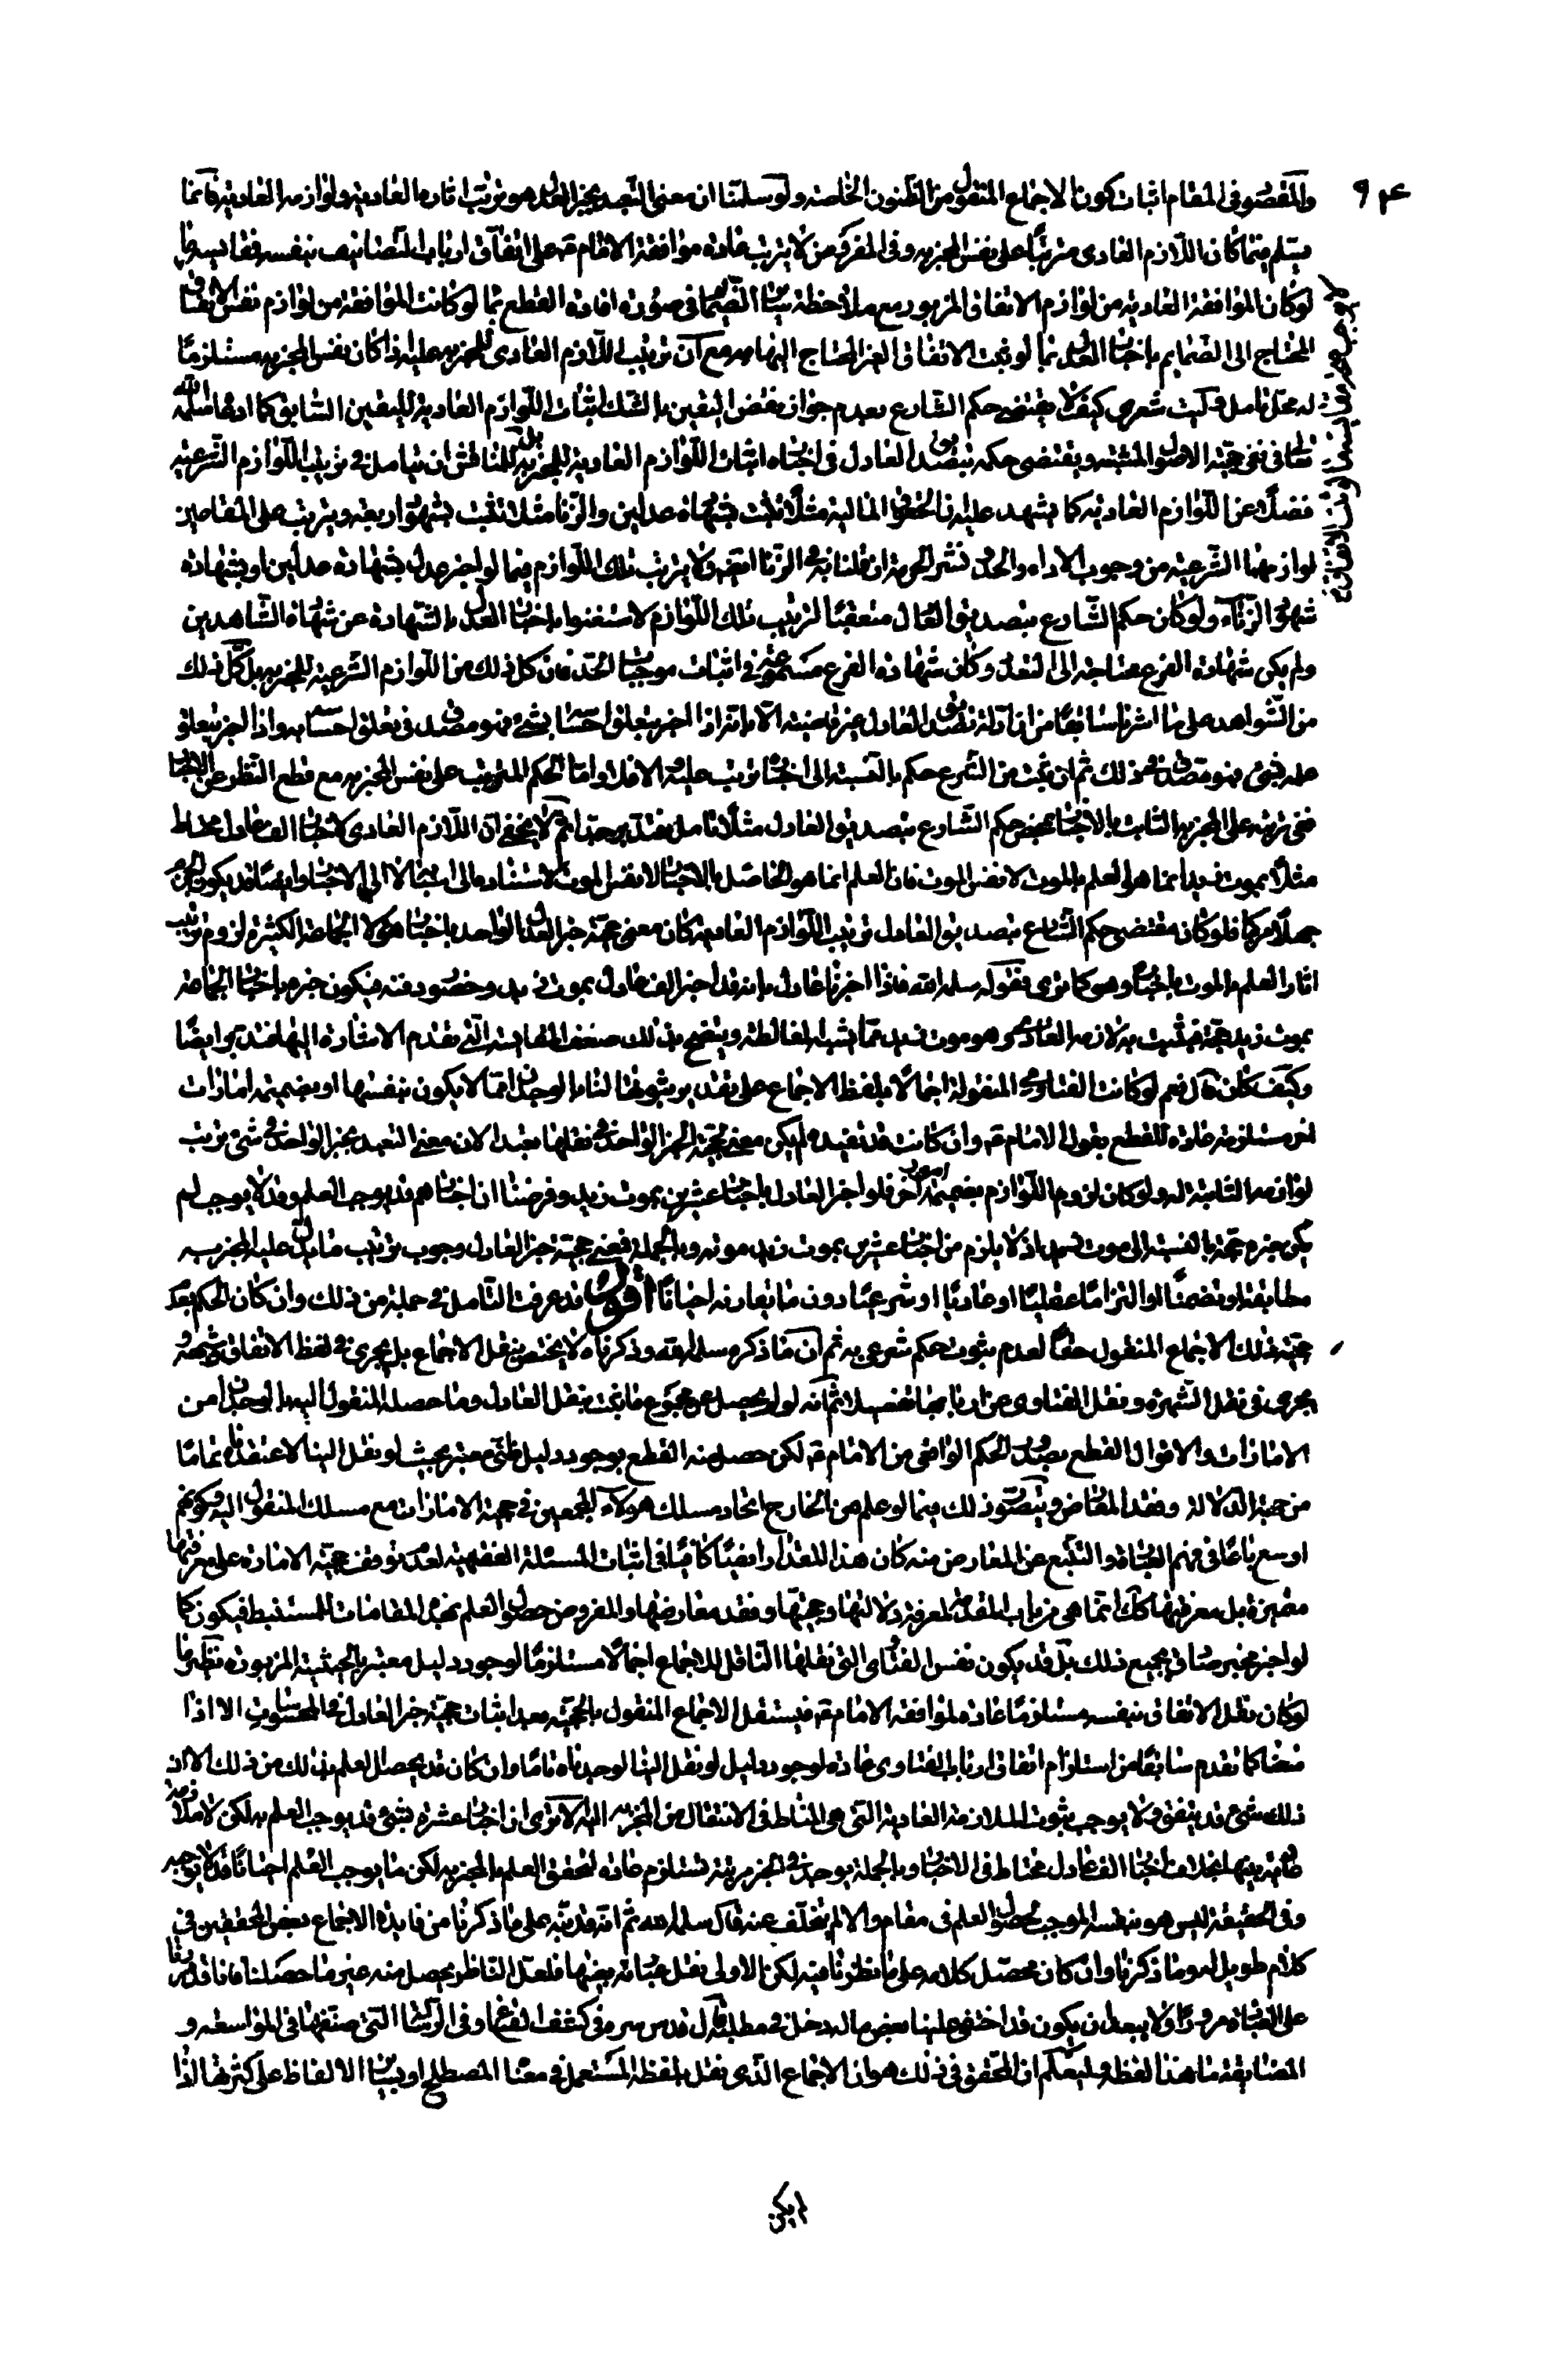 ٩٤
والمقصود في المقام اثبات كون الاجماع المنقول من الظنون الخاصة ولو سلمنا ان معنى التعبد بخبر العدل هو ترتيب اثاره العادية ولوازمه العادية فانما
يسلم فيما كان اللازم العادي مترتبا على نفس المخبر به وفي المفروض لا يترتب عادة موافقة الامام ع على اتفاق ارباب
لو كان الموافقة العادية من لوازم الاتفاق المزبور مع ملاحظة الضمايم في صورة افادة القطع بما لو كانت الموافقة من لوازم نفس الاتفاق
المحتاج الى الضمايم باخبار العدل بما لو ثبت الاتفاق الغير المحتاج اليها مع ان ترتيب اللازم العادي للمخبر به عليه اذا كان نفس المخبر به مستلزما
له محل تامل فليت شعري كيف لا يقتضي حكم الشارع بعدم جواز نقض اليقين بالشك اثبات اللوازم العادية لليقين السابق كما ادعاه سلمه الله
تعالى في نفي حجية الاصول المثبتة ويقتضي حكمه بتصديق العادل في اخباره اثبات اللوازم العادية للمخبر به بل للمناقش ان يتامل في ترتيب اللوازم الشرعية
فضلا عن اللوازم العادية كما يشهد عليه ان الحقوق المالية مثلا تثبت بشهادة عدلين والزنا مثلا يثبت بشهود اربعة ويترتب على المقامين
لوازمهما الشرعية من وجوب الاداء والحد ونشر الحرمة ان قلنا به في الزنا ايضا ولا يترتب تلك اللوازم فيما لو اخبر عدل بشهادة عدلين او بشهادة
شهود الزنا ولو كان حكم الشارع بتصديق العادل متعقبا لترتيب تلك اللوازم لاستغنوا باخبار العدل بالشهادة عن شهادة الشاهدين
ولم يكن شهادة الفرع محتاجة الى التعدد وكان شهادة الفرع مسموعة في اثبات موجبات الحد فان كل ذلك من اللوازم الشرعية للمخبر به بل كل ذلك
من الشواهد على ما اشرنا سابقا من ان ادلة تصديق العادل غير قاضية الا بانه اذا اخبر بتعلق احساسه بشيء فهو مصدق في تعلق احساسه واذا اخبر بتعلق
علمه بشيء فهو مصدق في ذلك ثم ان ثبت من الشرع حكم بالنسبة الى اخباره ترتب عليه والا فلا واما الحكم المترتب على نفس المخبر به مع قطع النظر عن الاخبار
ففي ترتبه على المخبر به الثابت بالاخبار بمحض حكم الشارع بتصديق العادل مثلا تامل فتدبر جدا ثم لا يخفى ان اللازم العادي لاخبار الف عادل محتاط
مثلا بموت زيد انما هو العلم بالموت لا نفس الموت فان العلم انما هو الحاصل بالاخبار لا نفس الموت لاستناده الى اسبابه لا الى الاخبار وايضا قد يكون المخبر به
جهلا مركبا فلو كان مقتضى حكم الشارع بتصديق العادل ترتيب اللوازم العادية كان معنى حجية خبر العدل الواحد باخبار هؤلاء الجماعة الكثيرة لزوم ترتيب
اثار العلم بالموت باخباره وهو كما ترى بقوله سلمه الله فاذا اخبرنا عادل بانه قد اخبر الف عادل بموت زيد وحضور دفنه فيكون خبره باخبار الجماعة
بموت زيد حجة فيثبت به لازمه العادي وهو موت زيد مما يشبه المغالطة ويتضح بذلك ضعف المقايسة التي تقدم الاشارة اليها فتدبر ايضا
وكيف كان قال نعم لو كانت الفتاوى المنقولة اجمالا بلفظ الاجماع على تقدير ثبوتها لنا بالوجدان مما لا يكون بنفسها او بضميمة امارات
اخر مستلزمة عادة للقطع بقول الامام ع وان كانت قد تفيده لم يكن معنى لحجية الخبر الواحد في نقلها تعبدا لان معنى التعبد بخبر الواحد في شيء ترتيب
لوازمه الثابتة له ولو كان لزوم اللوازم بضميمة امور اخر فلو اخبر العادل باخبار عشرين بموت زيد وفرضنا ان اخبارهم قد يوجب العلم وقد لا يوجب لم
يكن خبره حجة بالنسبة الى موت زيد اذ لا يلزم من اخبار عشرين بموت زيد موته وبالجملة فمعنى حجية خبر العادل وجوب ترتيب ما يدل عليه المخبر به
مطابقة او تضمنا او التزاما عقليا او عاديا او شرعيا دون ما يقارنه احيانا اقول قد عرفت التامل في جملة من ذلك وان كان الحكم بعدم
حجية ذلك الاجماع المنقول حقا لعدم ثبوت حكم شرعي به ثم ان ما ذكره سلمه الله وذكرناه لا يختص بنقل الاجماع بل يجري في لفظ الاتفاق وشبهه
يجري في نقل الشهرة ونقل الفتاوى عن اربابها تفصيلا ثم انه لو لم يحصل من مجموع ما ثبت بنقل العادل وما حصله المنقول اليه بالوجدان من
الامارات والاقوال القطع بصدور الحكم الواقعي من الامام ع لكن حصل منه القطع بوجود دليل ظني معتبر بحيث لو نقل الينا لاعتقدناه تماما
من جهة الدلالة وفقد المعارض ويتصور ذلك فيما لو علم من الخارج اتحاد مسلك هؤلاء المجمعين في حجية الامارات مع مسلك المنقول اليه وكونهم
اوسع باعا في فهم العبارة والتتبع عن المعارض منه كان هذا المقدار ايضا كافيا في اثبات المسئلة الفقهية لعدم توقف حجية الامارة على معرفتها
متميزة بل معرفتها كك انما هي من باب المقدمة لمعرفة دلالتها وحجيتها وفقد معارضها والمفروض حصول العلم بهذه المقامات للمستنبط فيكون كما
لو اخبر مخبر صادق بجميع ذلك بل قد يكون نفس الفتاوى التي نقلها الناقل للاجماع اجمالا مستلزما لوجود دليل معتبر بالحيثية المزبورة نظير ما
لو كان نقل الاتفاق بنفسه مستلزما عادة لموافقة الامام ع فيستقل الاجماع المنقول بالحجية بعد اثبات حجية خبر العادل في المحسوسات الا اذا
منعنا كما تقدم سابقا من استلزام اتفاق ارباب الفتاوى عادة لوجود دليل لو نقل الينا لوجدناه تاما وان كان قد يحصل العلم بذلك من ذلك الا ان
ذلك شيء قد يتفق ولا يوجب ثبوت الملازمة العادية التي هي المناط في الانتقال من المخبر به اليه الا ترى ان اخبار عشرة بشيء قد يوجب العلم به لكن لا ملازمة
عادية بينهما بخلاف اخبار الف عادل محتاط في الاخبار وبالجملة يوجد في الخبر مرتبة تستلزم عادة لتحقق العلم بالمخبر به لكن ما يوجب العلم احيانا قد لا يوجبه
وفي الحقيقة ليس هو بنفسه الموجب لحصول العلم في مقام والا لم يتخلف عنه قال سلمه الله ثم انه قد نبه على ما ذكرنا من فايدة الاجماع بعض المحققين في
كلام طويل له وما ذكرنا وان كان محصل كلامه على ما نظرنا فيه لكن الاولى نقل عبارته بعينها فلعل الناظر يحصل منه غير ما حصلنا فانا قد مررنا
على العبارة مرورا ولا يبعد ان يكون قد اختفى علينا بعض ما له دخل في مطلبه قال قدس سره في كشف القناع وفي الرسالة التي صنفها في المواسعة و
المضايقة ما هذا لفظه وليعلم ان المحقق في ذلك هو ان الاجماع الذي نقل بلفظه المستعمل في معناه المصطلح او بسائر الالفاظ على كثرتها اذا
لم يكن